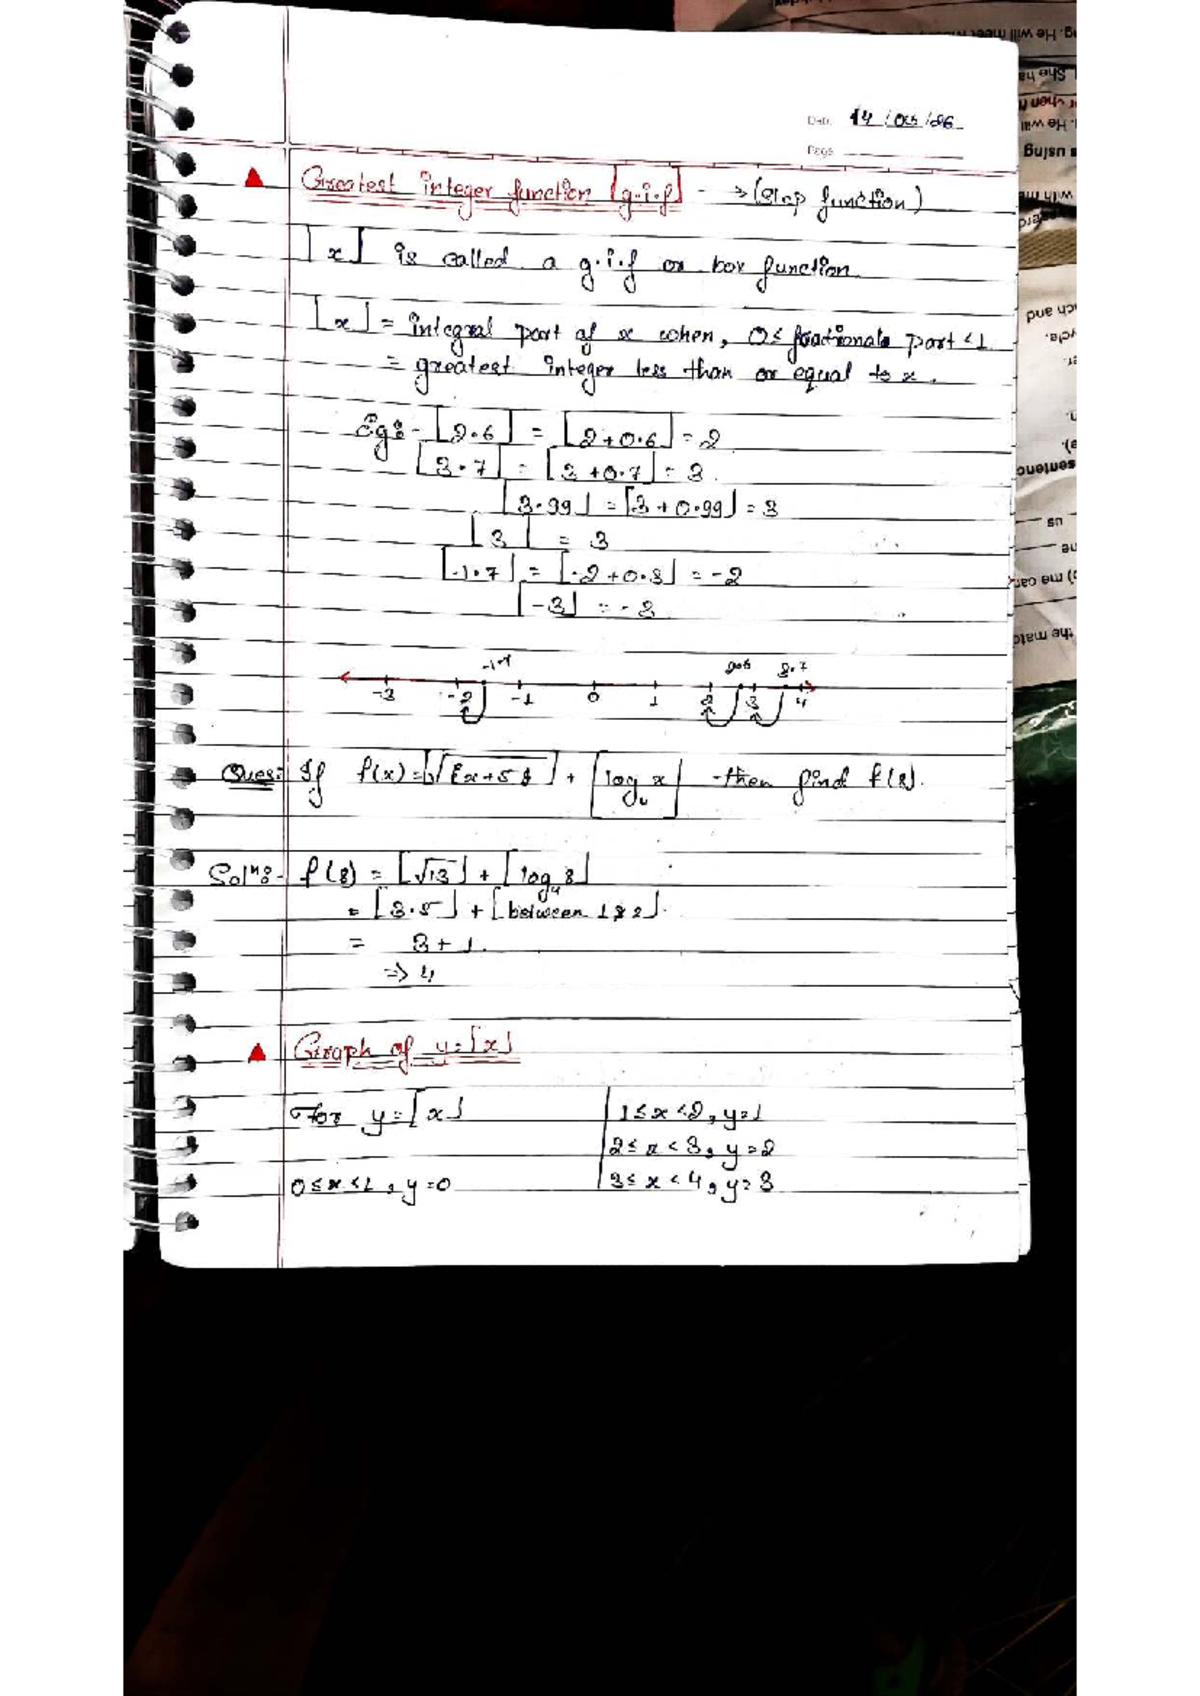 Date 14 / Oct / 26
Page
Greatest integer function [g.i.f] - → (Step function)
[x] is called a g.i.f or box function
[x] = integral part of x when, 0 ≤ fractional part < 1
= greatest integer less than or equal to x.
Eg:- [2.6] = [2+0.6] = 2
[3.7] = [3+0.7] = 3
[3.99] = [3+0.99] = 3
[3] = 3
[-1.7] = [-2+0.3] = -2
[-3] = -3
-1.7 2.6 3.7
-3 -2 -1 0 1 2 3 4
Ques: If f(x) = + [log₄ x] then find f(8).
Solⁿ:- f(8) = [√13] + [log₄ 8]
= [3.5] + [between 1 & 2].
= 3+1.
⇒ 4
Graph of y=[x]
For y=[x]
0≤x<1, y=0
1≤x<2, y=1
2≤x<3, y=2
3≤x<4, y=3